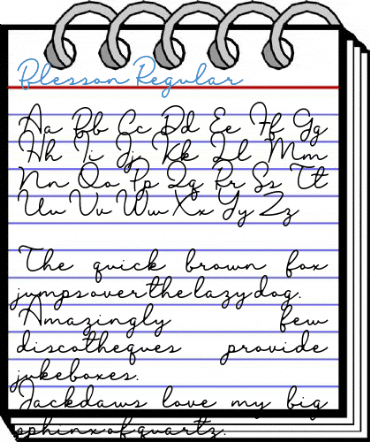 Blesson Regular
Aa Bb Cc Dd Ee Ff Gg
Hh Ii Jj Kk Ll Mm
Nn Oo Pp Qq Rr Ss Tt
Uu Vv Ww Xx Yy Zz
The quick brown fox
jumps over the lazy dog.
Amazingly few
discotheques provide
jukeboxes.
Jackdaws love my big
sphinx of quartz.